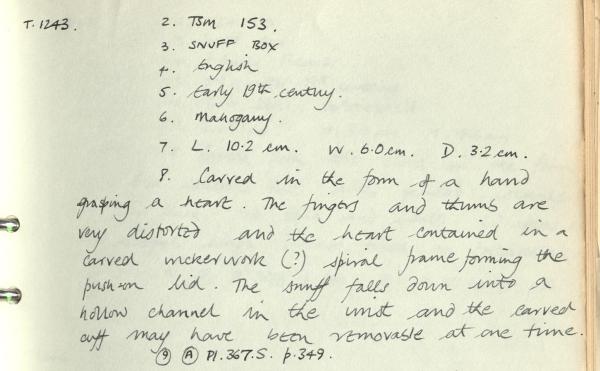 T.1243. 2. TSM 153.
3. SNUFF BOX
4. English
5. Early 19th century.
6. Mahogany.
7. L. 10.2 cm. W. 6.0 cm. D. 3.2 cm.
8. Carved in the form of a hand
grasping a heart. The fingers and thumb are
very distorted and the heart contained in a
carved wickerwork (?) spiral frame forming the
push-on lid. The snuff falls down into a
hollow channel in the wrist and the carved
cuff may have been removable at one time.
9 A Pl.367.S. p.349.